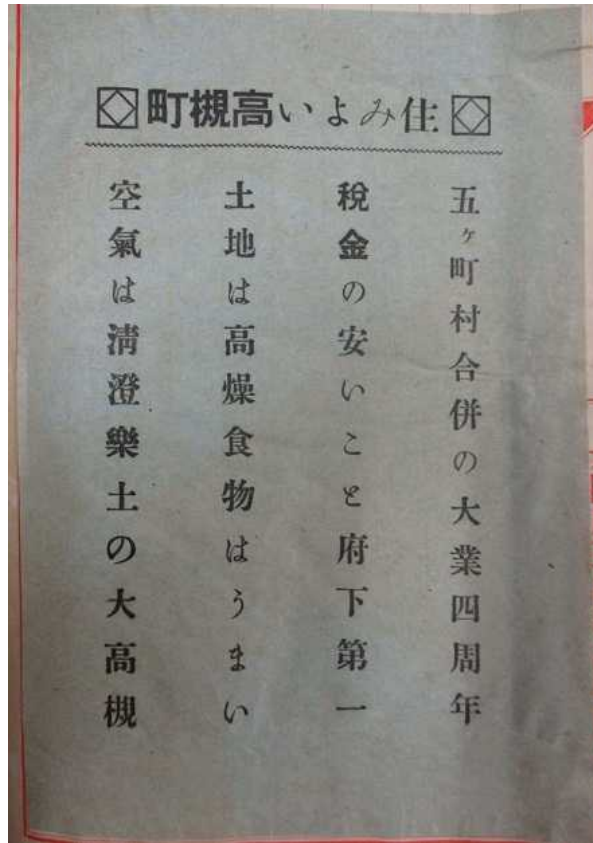 住みよい高槻町
五ヶ町村合併の大業四周年
稅金の安いこと府下第一
土地は高燥食物はうまい
空氣は淸澄樂土の大高槻